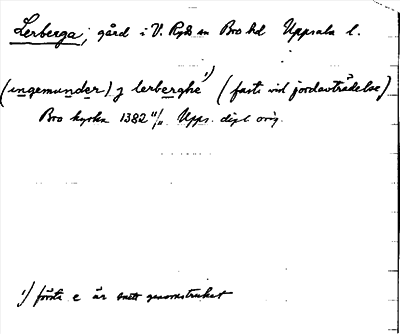 Lerberga, gård i V. Ryds sn Bro hd Uppsala l.
(ingemunder) j lerberghe 1) (faste vid jordavträdelse)
Bro kyrka 1382 11/11 Upps. dipl orig.
1) första e är snett genomstruket